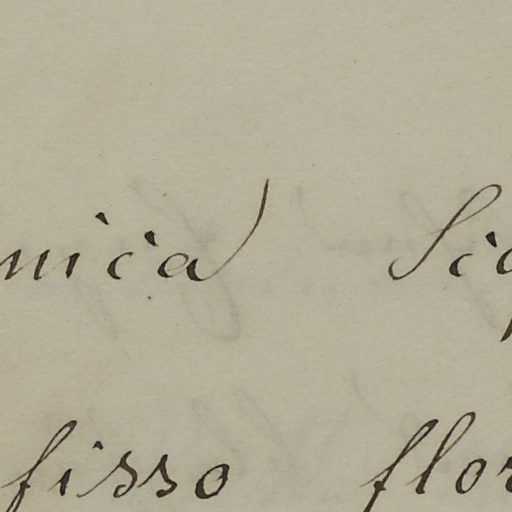 nica Sic
fisso flor